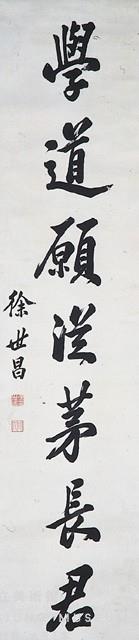 學道願從茅長君
徐世昌